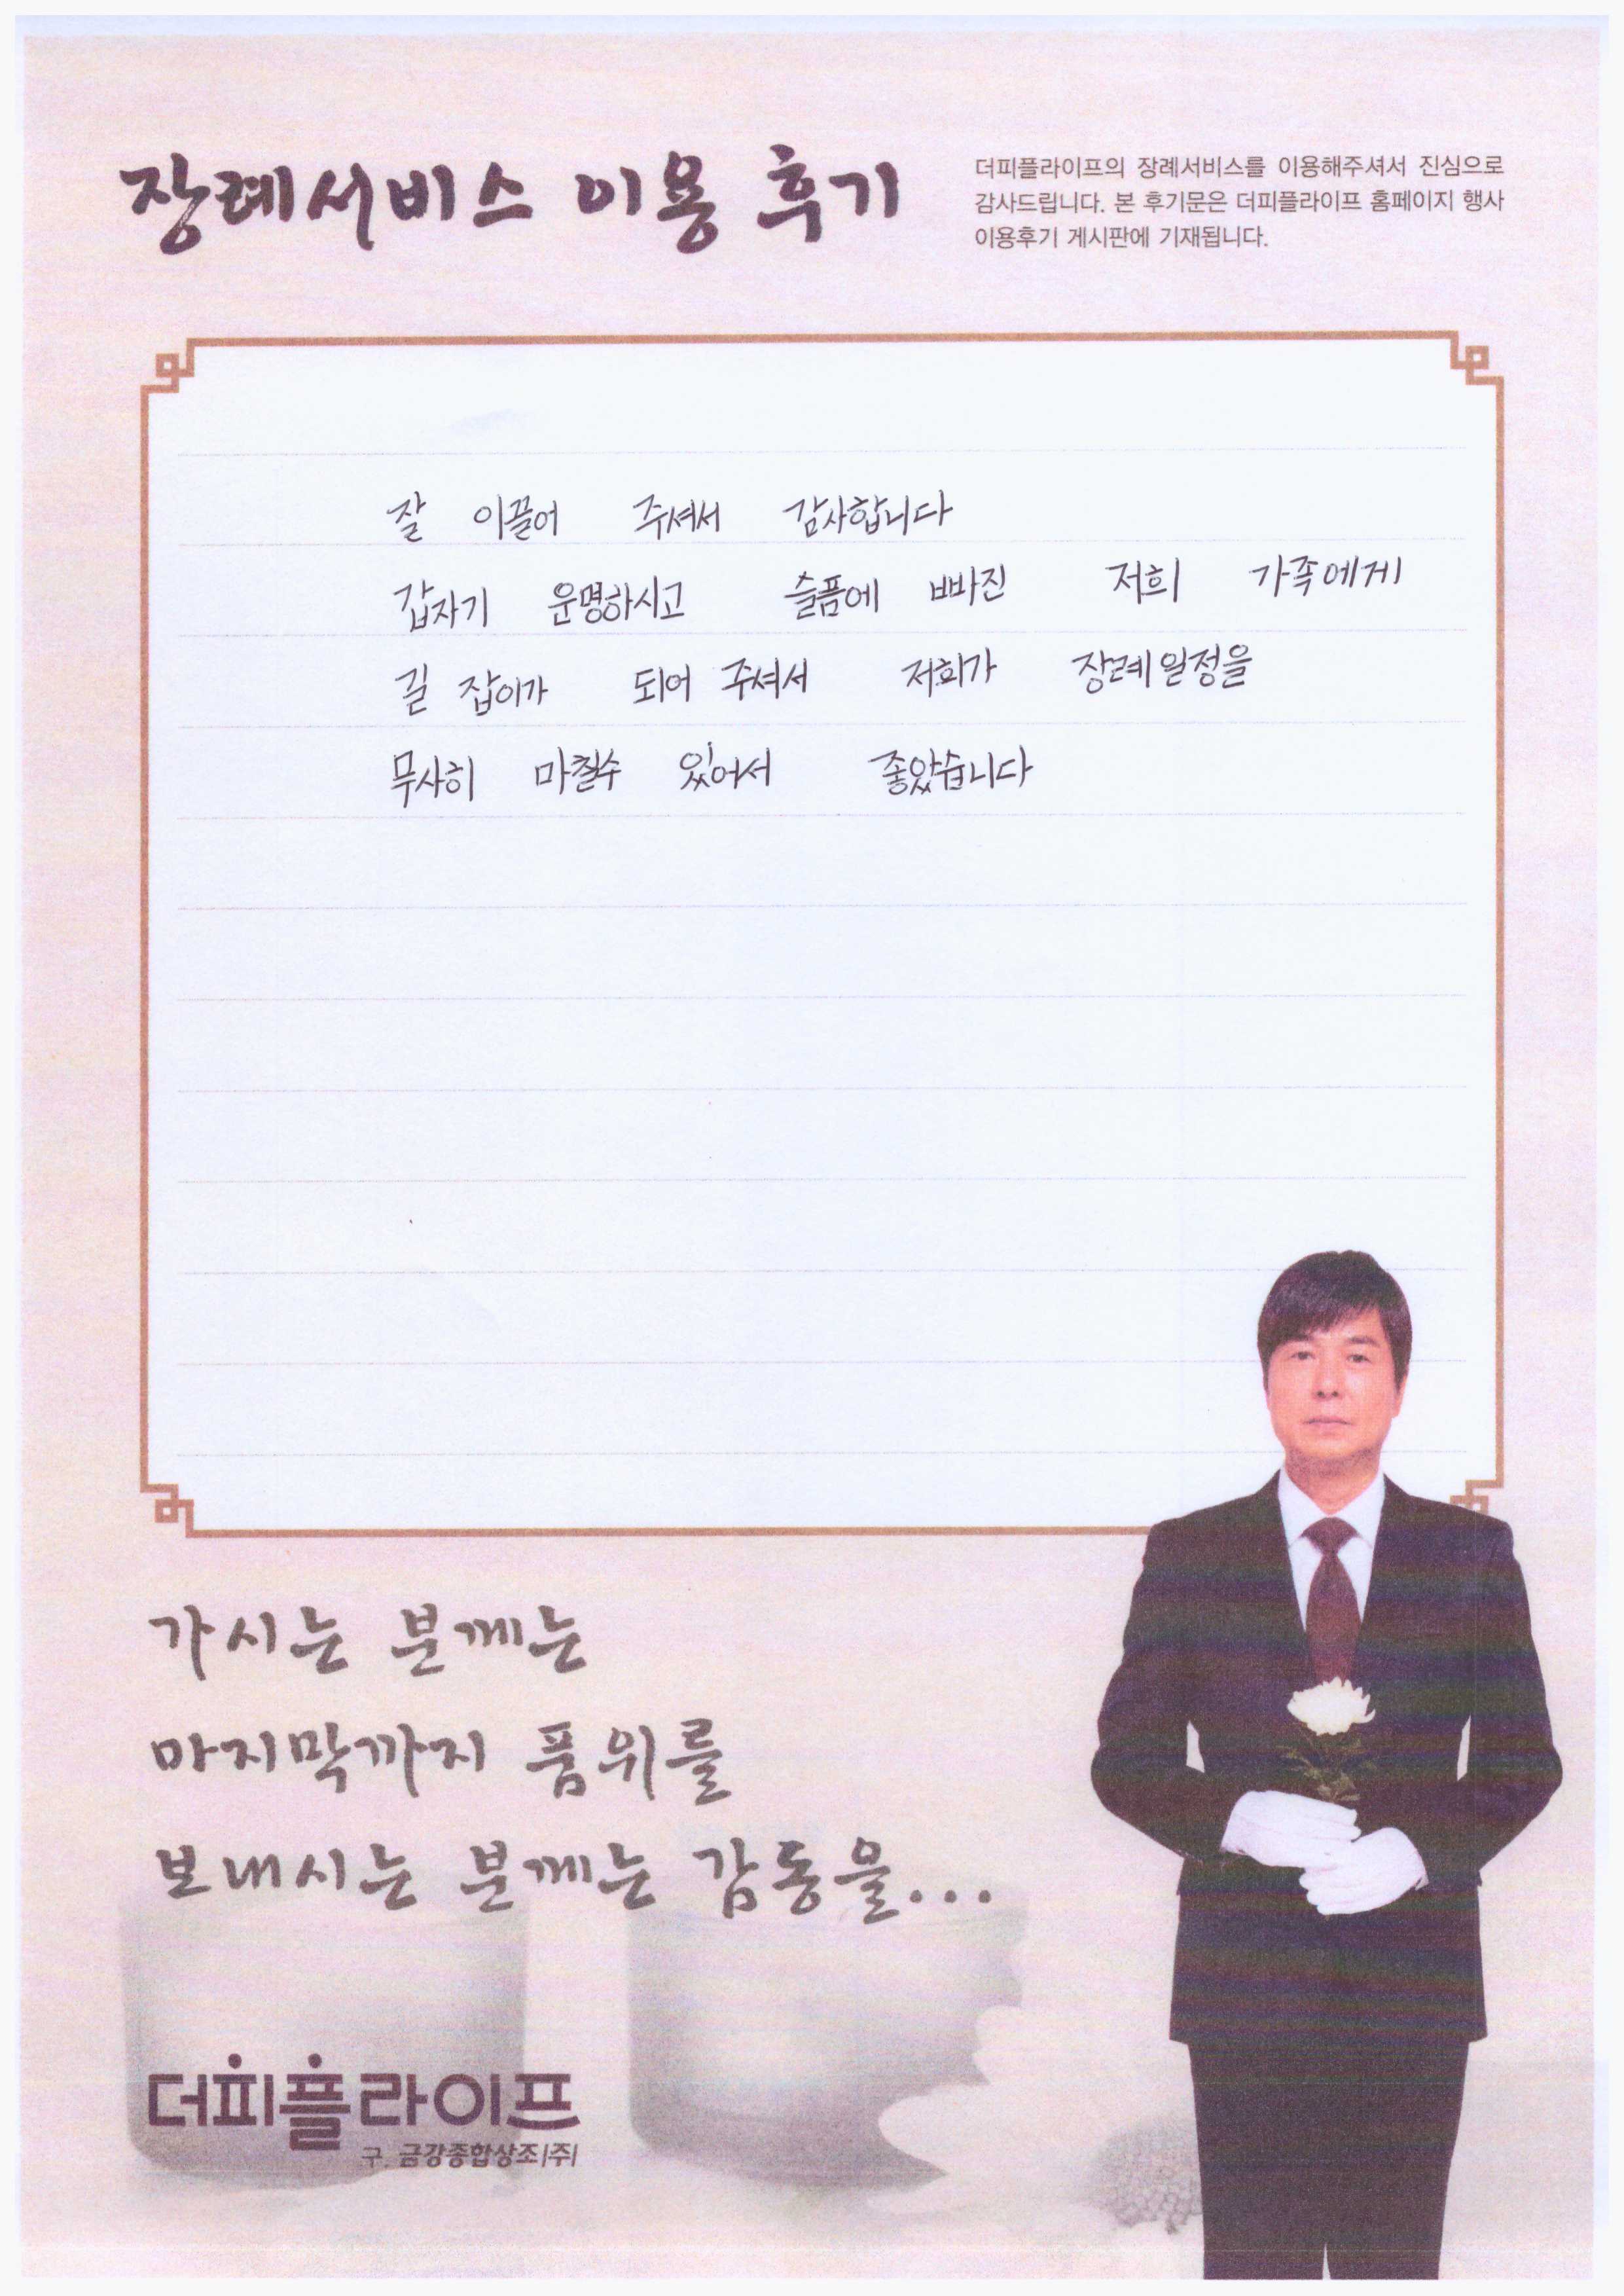 장례서비스 이용 후기
더피플라이프의 장례서비스를 이용해주셔서 진심으로
감사드립니다. 본 후기문은 더피플라이프 홈페이지 행사
이용후기 게시판에 기재됩니다.
잘 이끌어 주셔서 감사합니다
갑자기 운명하시고 슬픔에 빠진 저희 가족에게
길 잡이가 되어 주셔서 저희가 장례일정을
무사히 마칠수 있어서 좋았습니다
가시는 분께는
마지막까지 품위를
보내시는 분께는 감동을...
더피플라이프
구. 금강종합상조(주)